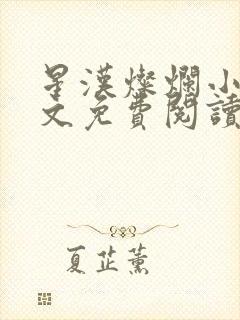 星漢燦爛小
文免費閱讀
夏芷薰